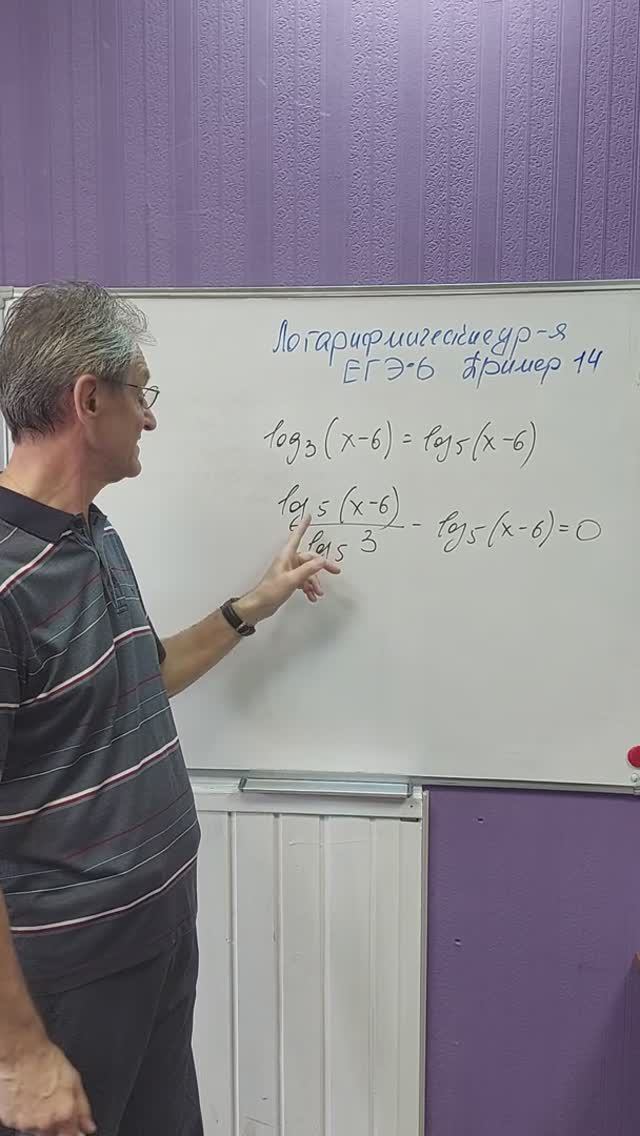 Логарифмические ур-я
ЕГЭ-6 Пример 14
log₃(x-6) = log₅(x-6)
log₅(x-6) / log₅ 3 - log₅(x-6) = 0